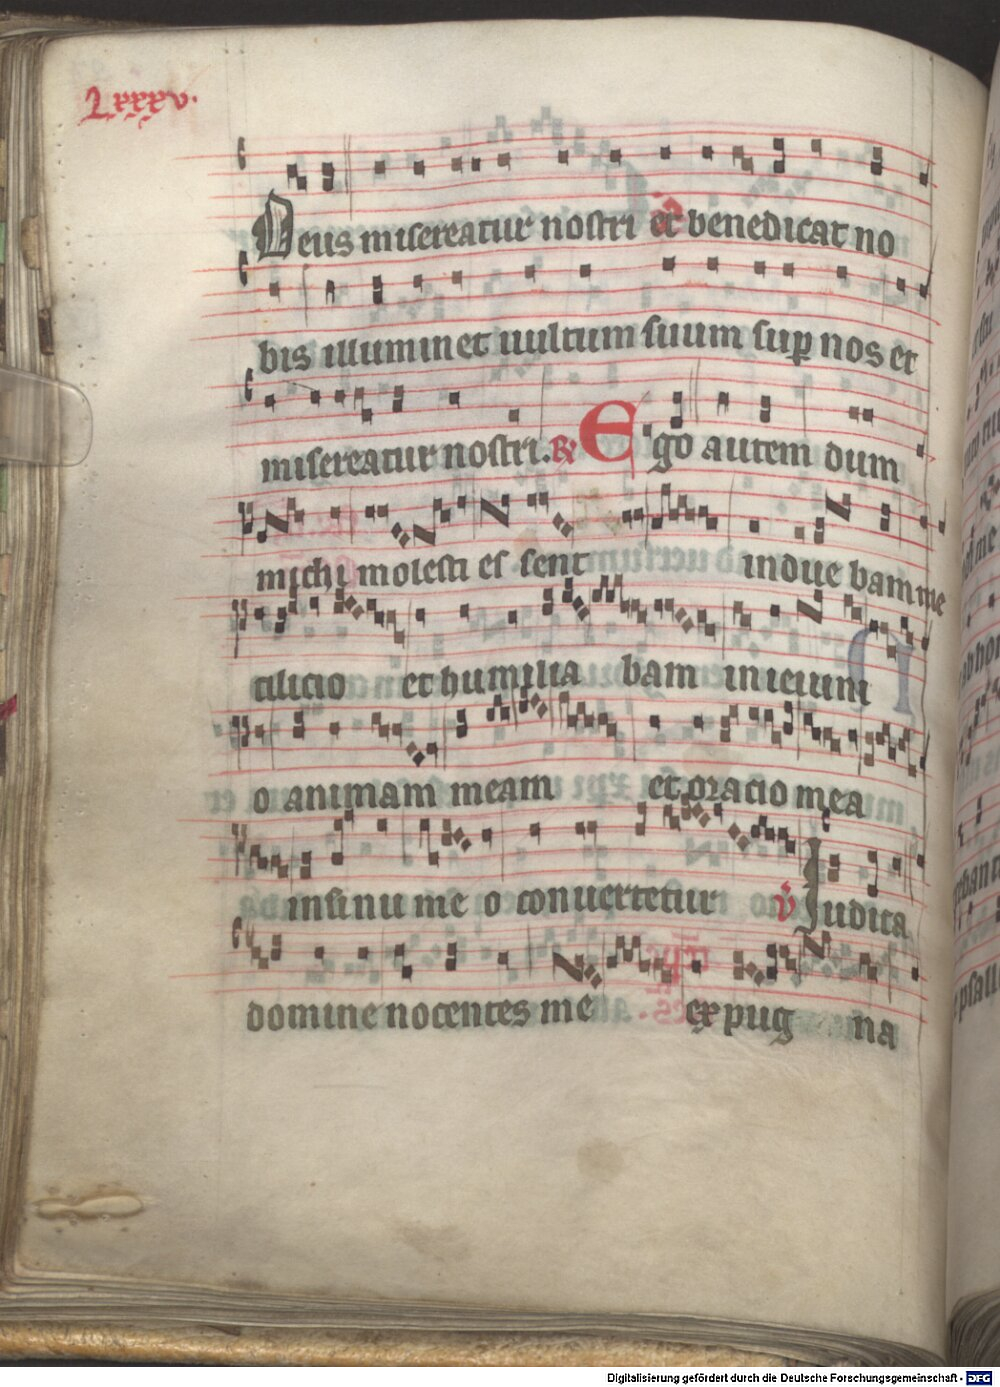 Lxxxv.
Deus misereatur nostri et benedicat no
bis illuminet uultum suum sup nos et
misereatur nostri. R Ego autem dum
michi molesti es sent indue bam me
cilicio et humilia bam in ieiuni
o animam meam et oracio mea
in sinu me o conuertetur v Iudica
domine nocentes me expug na
Digitalisierung gefördert durch die Deutsche Forschungsgemeinschaft - DFG